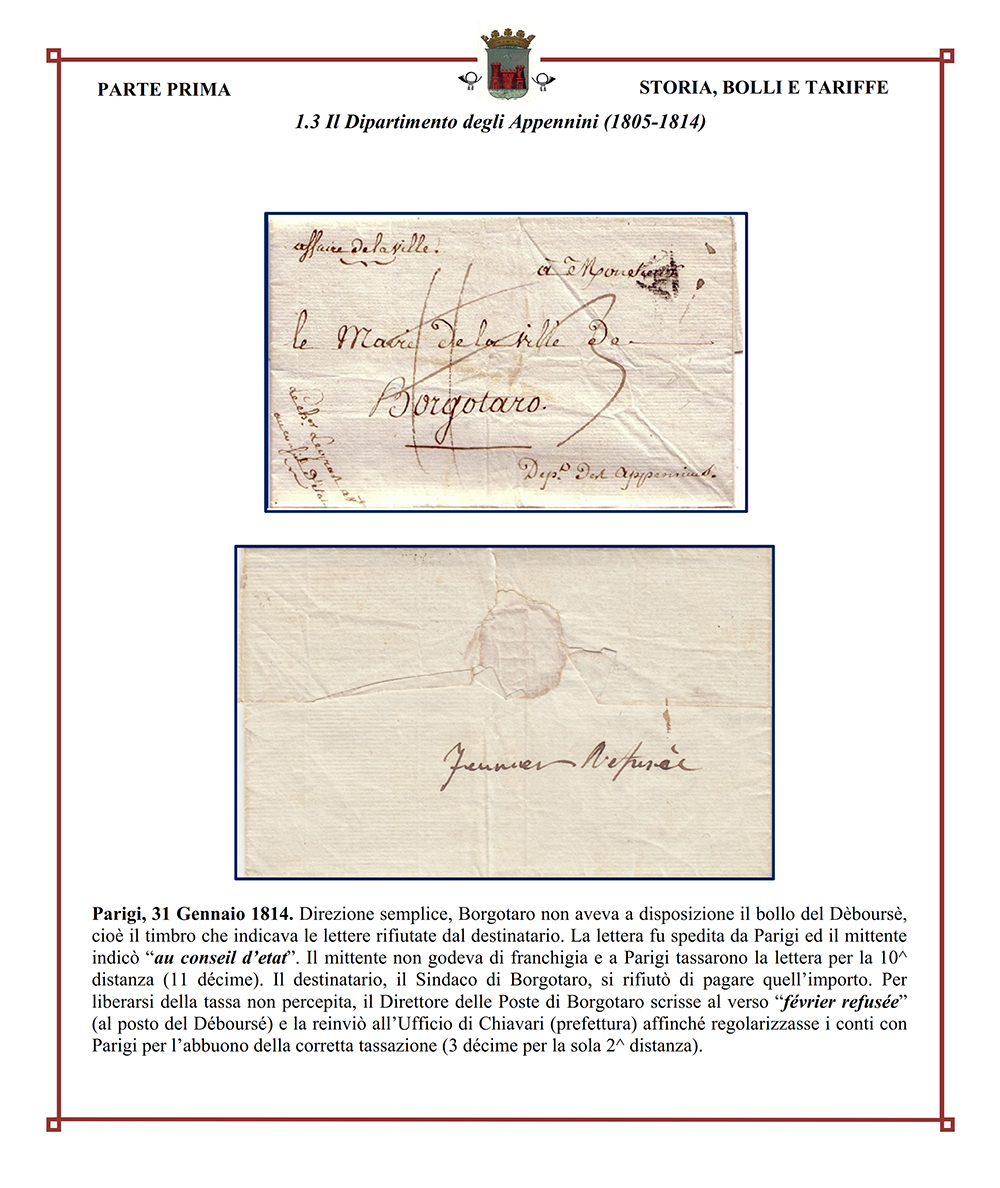 PARTE PRIMA
STORIA, BOLLI E TARIFFE
1.3 Il Dipartimento degli Appennini (1805-1814)
affaire de la ville.
à Monsieur
le Maire de la ville de
Borgotaro.
Dep.t Des appennins.
11
3
Refusée
Parigi, 31 Gennaio 1814. Direzione semplice, Borgotaro non aveva a disposizione il bollo del Dèboursè,
cioè il timbro che indicava le lettere rifiutate dal destinatario. La lettera fu spedita da Parigi ed il mittente
indicò “au conseil d’etat”. Il mittente non godeva di franchigia e a Parigi tassarono la lettera per la 10^
distanza (11 décime). Il destinatario, il Sindaco di Borgotaro, si rifiutò di pagare quell’importo. Per
liberarsi della tassa non percepita, il Direttore delle Poste di Borgotaro scrisse al verso “février refusée”
(al posto del Déboursé) e la reinviò all’Ufficio di Chiavari (prefettura) affinché regolarizzasse i conti con
Parigi per l’abbuono della corretta tassazione (3 décime per la sola 2^ distanza).